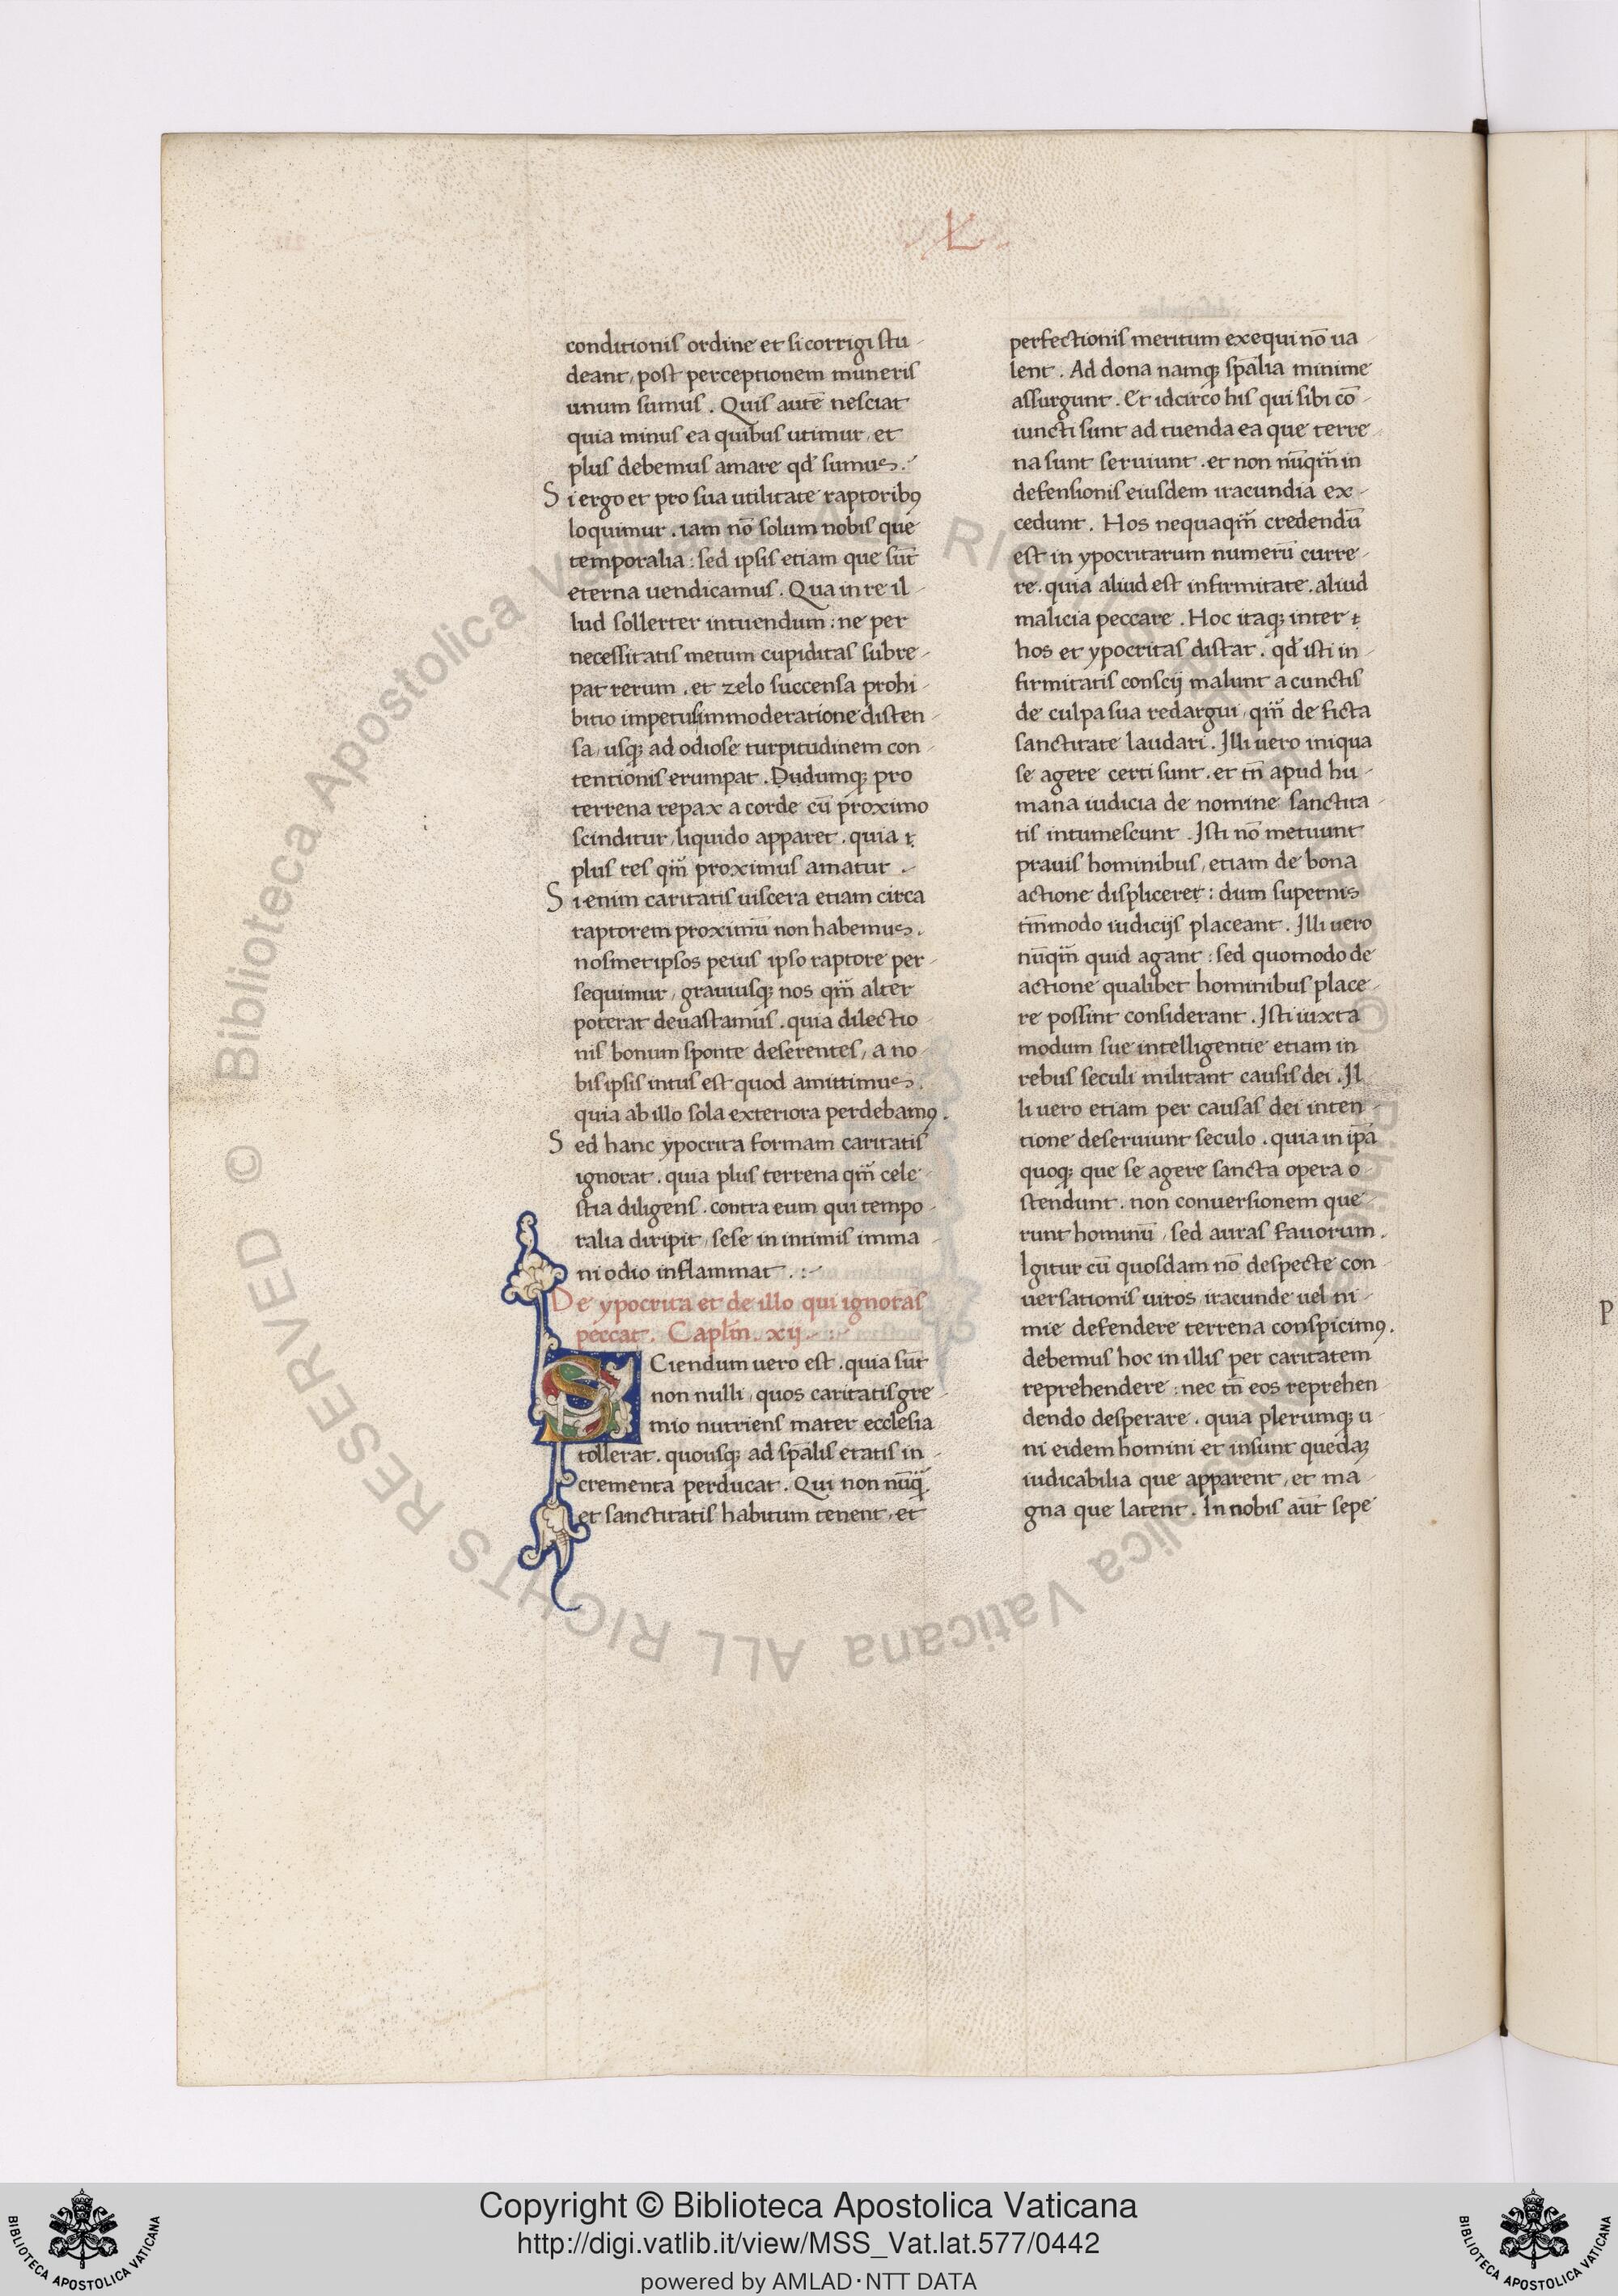 .XL.
conditionis ordine et si corrigi stu-
deant, post perceptionem muneris
unum sumus. Quis autē nesciat
quia minus ea quibus utimur, et
plus debemus amare qd̄ sumus.
Si ergo et pro sua utilitate raptoribꝰ
loquimur. iam nō solum nobis que
temporalia: sed ipsis etiam que sūt
eterna uendicamus. Qua in re il-
lud sollerter intuendum: ne per
necessitatis metum cupiditas subre-
pat rerum. et zelo succensa prohi-
bitio impetus immoderatione disten-
sa, usqꝫ ad odiose turpitudinem con-
tentionis erumpat. Dudumqꝫ pro
terrena re pax a corde cū proximo
scinditur, liquido apparet. quia
plus res qm̄ proximus amatur.
Si enim caritatis uiscera etiam circa
raptorem proximū non habemus.
nosmet ipsos peius ipso raptore per-
sequimur, grauiusqꝫ nos qm̄ alter
poterat deuastamus. quia dilectio-
nis bonum sponte deserentes, a no-
bis ipsis intus est quod amittimus.
quia ab illo sola exteriora perdebamꝰ.
Sed hanc ypocrita formam caritatis
ignorat. quia plus terrena qm̄ cele-
stia diligens. contra eum qui tempo-
ralia diripit, sese in intimis imma-
ni odio inflammat.:-
De ypocrita et de illo qui ignoras
peccat. Caplm̄. xij.
SCiendum uero est. quia sūt
non nulli, quos caritatis gre-
mio nutriens mater ecclesia
tollerat. quousqꝫ ad sp̄alis etatis in-
crementa perducat. Qui non nūq̄.
et sanctitatis habitum tenent, et
perfectionis meritum exequi nō ua-
lent. Ad dona namqꝫ sp̄alia minime
assurgunt. Et idcirco his qui sibi cō-
iuncti sunt ad tuenda ea que terre-
na sunt seruiunt. et non nūqm̄ in
defensionis eiusdem iracundia ex-
cedunt. Hos nequaqm̄ credendū
est in ypocritarum numerū curre-
re. quia aliud est infirmitate. aliud
malicia peccare. Hoc itaqꝫ inter
hos et ypocritas distat. qd̄ isti in-
firmitatis conscij malunt a cunctis
de culpa sua redargui, qm̄ de ficta
sanctitate laudari. Illi uero iniqua
se agere certi sunt. et tn̄ apud hu-
mana iudicia de nomine sanctita-
tis intumescunt. Isti nō metuunt
prauis hominibus, etiam de bona
actione displicere: dum supernis
tm̄modo iudicijs placeant. Illi uero
nūqm̄ quid agant: sed quomodo de
actione qualibet hominibus place-
re possint considerant. Isti iuxta
modum sue intelligentie etiam in
rebus seculi militant causis dei. Il-
li uero etiam per causas dei inten-
tione deseruiunt seculo. quia in ip̄a
quoqꝫ que se agere sancta opera o-
stendunt. non conuersionem que-
runt hominū, sed auras fauorum.
Igitur cū quosdam nō despecte con-
uersationis uiros iracunde uel ni-
mie defendere terrena conspicimꝰ.
debemus hoc in illis per caritatem
reprehendere: nec tn̄ eos reprehen-
dendo desperare. quia plerumqꝫ u-
ni eidem homini et insunt quedaꝫ
iudicabilia que apparent, et ma-
gna que latent. In nobis aūt sepe
P
Copyright © Biblioteca Apostolica Vaticana
http://digi.vatlib.it/view/MSS_Vat.lat.577/0442
powered by AMLAD·NTT DATA
BIBLIOTECA APOSTOLICA VATICANA
BIBLIOTECA APOSTOLICA VATICANA
© Biblioteca Apostolica Vaticana ALL RIGHTS RESERVED
© Biblioteca Apostolica Vaticana ALL RIGHTS RESERVED